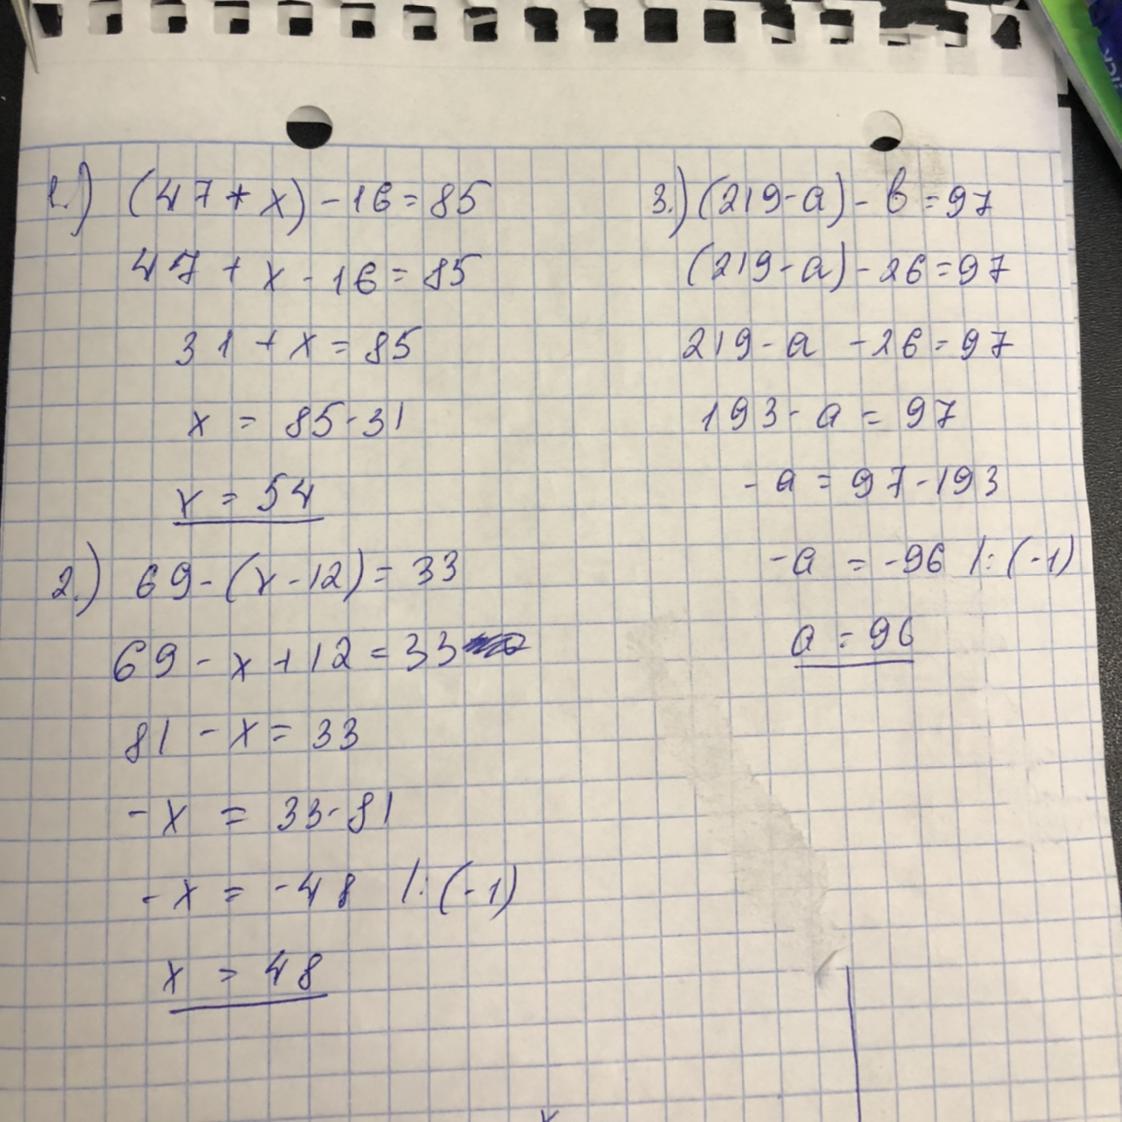 1.) (47+x)-16=85
47+x-16=85
31+x=85
x=85-31
x=54
2.) 69-(x-12)=33
69-x+12=33
81-x=33
-x=33-81
-x=-48 /:(-1)
x=48
3.) (219-a)-b=97
(219-a)-26=97
219-a-26=97
193-a=97
-a=97-193
-a=-96 /:(-1)
a=96